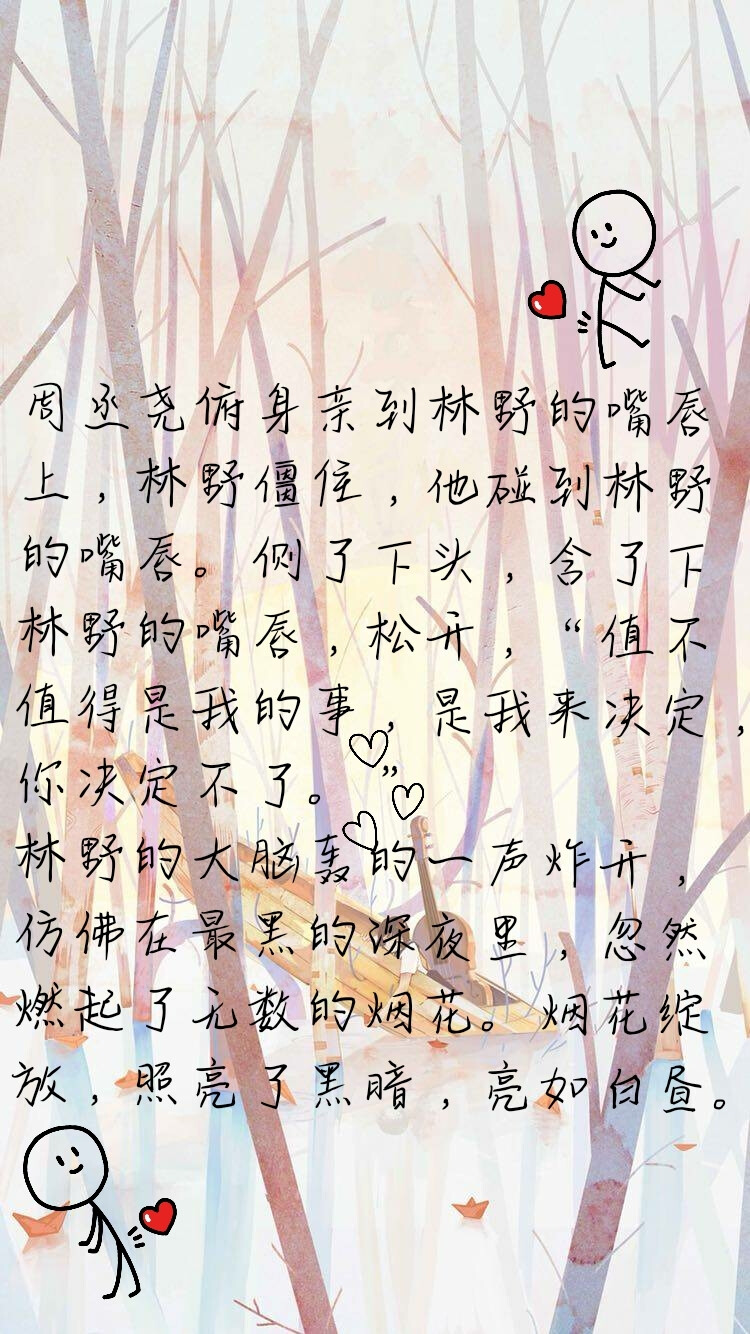 周丞尧俯身亲到林野的嘴唇
上，林野僵住，他碰到林野
的嘴唇。侧了下头，含了下
林野的嘴唇，松开，“值不
值得是我的事，是我来决定，
你决定不了。”
林野的大脑轰的一声炸开，
仿佛在最黑的深夜里，忽然
燃起了无数的烟花。烟花绽
放，照亮了黑暗，亮如白昼。